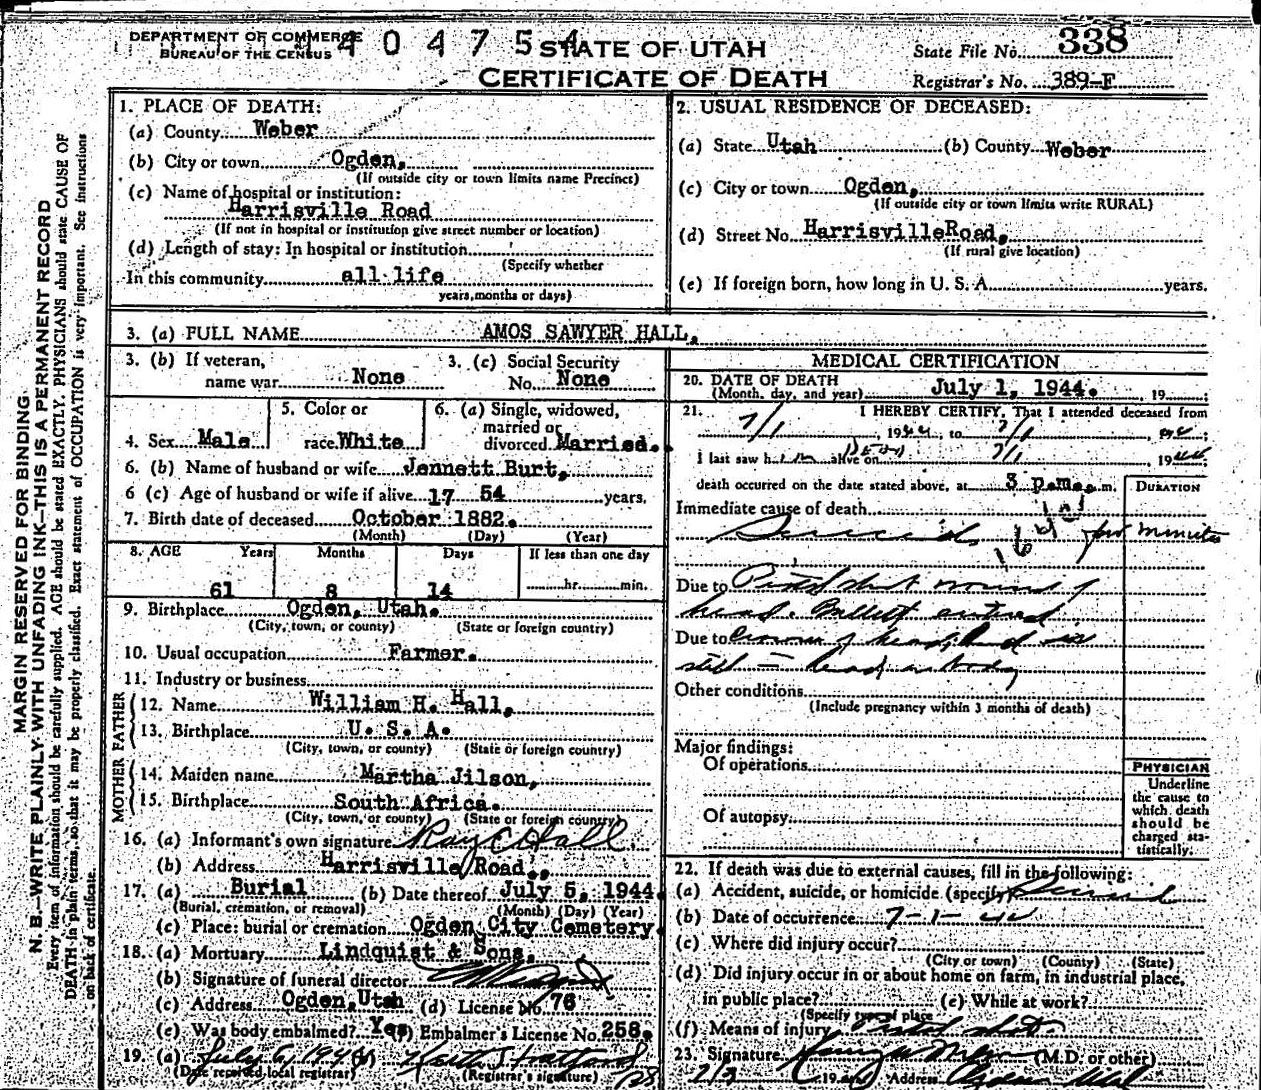 DEPARTMENT OF COMMERCE
BUREAU OF THE CENSUS
STATE OF UTAH
CERTIFICATE OF DEATH
State File No. 338
Registrar's No. 389-F
MARGIN RESERVED FOR BINDING
N. B.—WRITE PLAINLY WITH UNFADING INK—THIS IS A PERMANENT RECORD
Every item of information should be carefully supplied. AGE should be stated EXACTLY. PHYSICIANS should state CAUSE OF
DEATH in plain terms, so that it may be properly classified. Exact statement of OCCUPATION is very important. See instructions
on back of certificate.
1. PLACE OF DEATH:
(a) County Weber
(b) City or town Ogden,
(If outside city or town limits name Precinct)
(c) Name of hospital or institution:
Harrisville Road
(If not in hospital or institution give street number or location)
(d) Length of stay: In hospital or institution
(Specify whether
In this community all life
years, months or days)
2. USUAL RESIDENCE OF DECEASED:
(a) State Utah (b) County Weber
(c) City or town Ogden,
(If outside city or town limits write RURAL)
(d) Street No. Harrisville Road,
(If rural give location)
(e) If foreign born, how long in U. S. A. years.
3. (a) FULL NAME AMOS SAWYER HALL,
3. (b) If veteran,
name war None
3. (c) Social Security
No. None
4. Sex Male
5. Color or
race White
6. (a) Single, widowed,
married or
divorced Married.
6. (b) Name of husband or wife Jennett Burt,
6 (c) Age of husband or wife if alive 17 54 years,
7. Birth date of deceased October 1882.
(Month) (Day) (Year)
8. AGE Years Months Days If less than one day
61 8 14 hr. min.
9. Birthplace Ogden, Utah.
(City, town, or county) (State or foreign country)
10. Usual occupation Farmer.
11. Industry or business
FATHER
12. Name William H. Hall,
13. Birthplace U. S. A.
(City, town, or county) (State or foreign country)
MOTHER
14. Maiden name Martha Jilson,
15. Birthplace South Africa.
(City, town, or county) (State or foreign country)
16. (a) Informant's own signature Ray C Hall
(b) Address Harrisville Road,
17. (a) Burial (b) Date thereof July 5, 1944
(Burial, cremation, or removal) (Month) (Day) (Year)
(c) Place: burial or cremation Ogden City Cemetery.
18. (a) Mortuary Lindquist & Sons,
(b) Signature of funeral director
(c) Address Ogden, Utah (d) License No. 76
(e) Was body embalmed? Yes (f) Embalmer's License No. 258.
19. (a) July 6, 1944
(Date received local registrar) (Registrar's signature)
MEDICAL CERTIFICATION
20. DATE OF DEATH
(Month, day, and year) July 1, 1944. 19
21. I HEREBY CERTIFY, That I attended deceased from
7/1 1944, to 7/1, 44;
I last saw him alive on 7/1 1944
death occurred on the date stated above, at 3 p.m. m.
DURATION
Immediate cause of death
Suicide few minutes
Due to Pistol shot wound of
head. Bullet entered
Due to crown of head, and is
still in head or body
Other conditions
(Include pregnancy within 3 months of death)
Major findings:
Of operations
Of autopsy
PHYSICIAN
Underline
the cause to
which death
should be
charged sta-
tistically.
22. If death was due to external causes, fill in the following:
(a) Accident, suicide, or homicide (specify) Suicide
(b) Date of occurrence 7-1-44
(c) Where did injury occur?
(City or town) (County) (State)
(d) Did injury occur in or about home on farm, in industrial place,
in public place? (e) While at work?
(Specify type of place
(f) Means of injury Pistol shot
23. Signature (M.D. or other)
Address